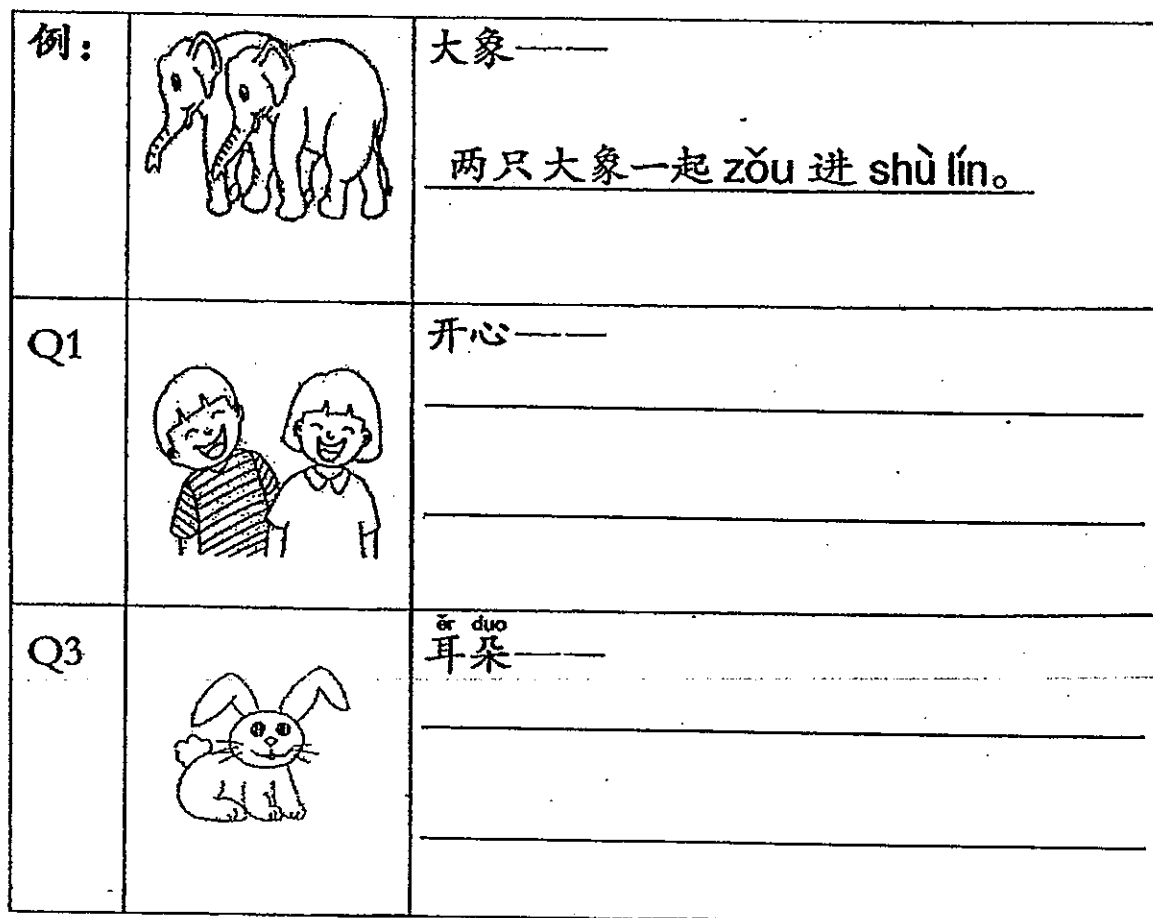 例：
大象——
两只大象一起 zǒu 进 shù lín。
Q1
开心——
Q3
ěr duo
耳朵——